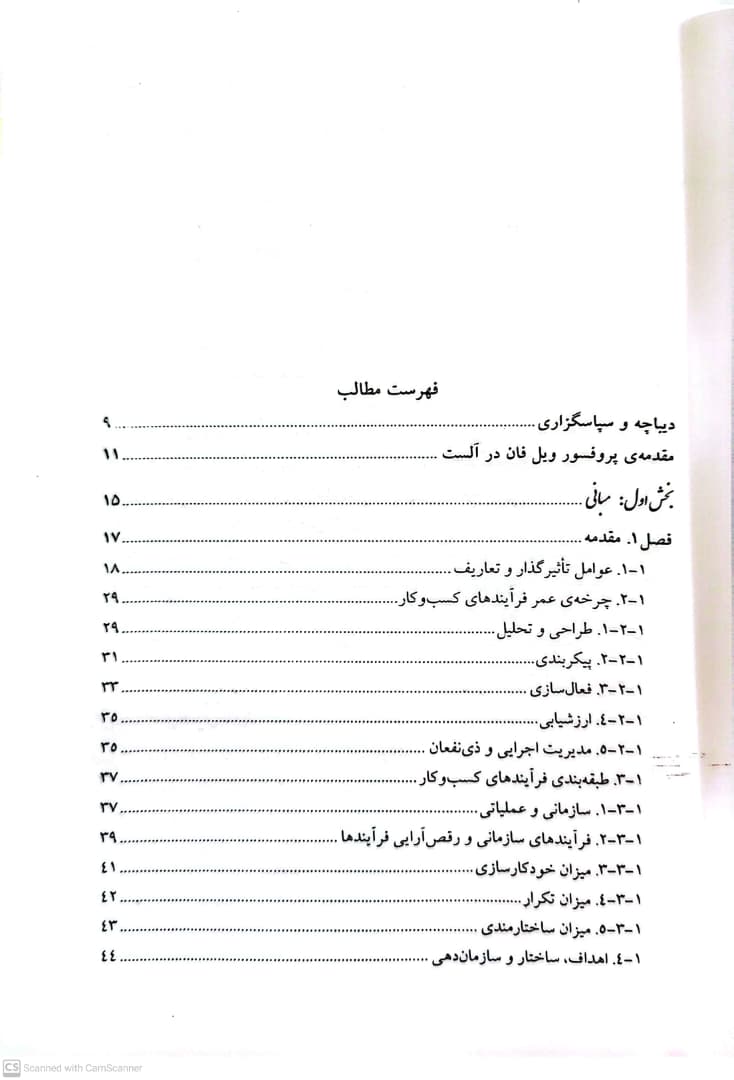 فهرست مطالب
دیباچه و سپاسگزاری ........ ۹
مقدمه‌ی پروفسور ویل فان در آلست ........ ۱۱
بخش اول: مبانی ........ ۱۵
فصل ۱. مقدمه ........ ۱۷
۱-۱. عوامل تأثیرگذار و تعاریف ........ ۱۸
۱-۲. چرخه‌ی عمر فرآیندهای کسب‌وکار ........ ۲۹
۱-۲-۱. طراحی و تحلیل ........ ۲۹
۱-۲-۲. پیکربندی ........ ۳۱
۱-۲-۳. فعال‌سازی ........ ۳۳
۱-۲-٤. ارزشیابی ........ ۳۵
۱-۲-۵. مدیریت اجرایی و ذی‌نفعان ........ ۳۵
۱-۳. طبقه‌بندی فرآیندهای کسب‌وکار ........ ۳۷
۱-۳-۱. سازمانی و عملیاتی ........ ۳۷
۱-۳-۲. فرآیندهای سازمانی و رقص‌آرایی فرآیندها ........ ۳۹
۱-۳-۳. میزان خودکارسازی ........ ٤۱
۱-۳-٤. میزان تکرار ........ ٤۲
۱-۳-۵. میزان ساختارمندی ........ ٤۳
۱-٤. اهداف، ساختار و سازمان‌دهی ........ ٤٤
CS Scanned with CamScanner